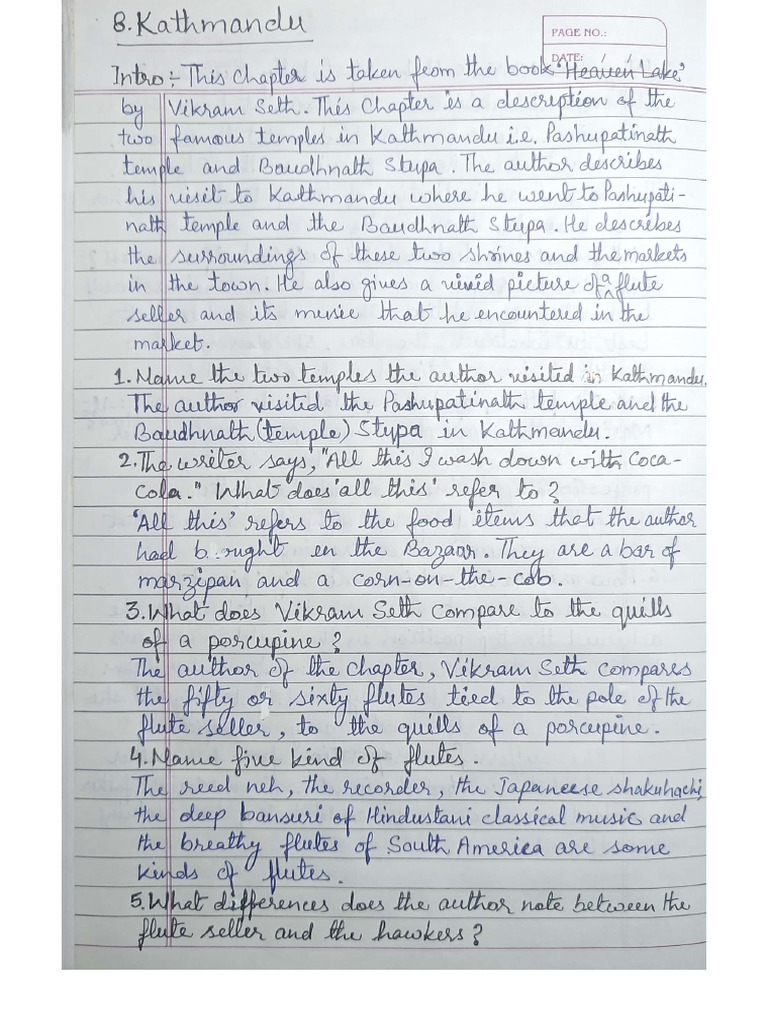 8. Kathmandu
PAGE NO.:
DATE:
Intro:- This Chapter is taken from the book 'Heaven Lake'
by Vikram Seth. This Chapter is a description of the
two famous temples in Kathmandu i.e. Pashupatinath
temple and Baudhnath Stupa. The author describes
his visit to Kathmandu where he went to Pashupati-
nath temple and the Baudhnath Stupa. He describes
the surroundings of these two shrines and the markets
in the town. He also gives a vivid picture of a flute
seller and its music that he encountered in the
market.
1. Name the two temples the author visited in Kathmandu.
The author visited the Pashupatinath temple and the
Baudhnath (temple) Stypa in Kathmandu.
2. The writer says, "All this I wash down with Coca-
Cola." What does 'all this' refer to?
'All this' refers to the food items that the author
had b ought en the Bazaar. They are a bar of
marzipan and a corn-on-the-cob.
3. What does Vikram Seth compare to the quills
of a porcupine?
The author of the chapter, Vikram Seth compares
the fifty or sixty flutes tied to the pole of the
flute seller, to the quills of a porcupine.
4. Name five kind of flutes.
The reed neh, the recorder, the Japaneese shakuhachi,
the deep bansuri of Hindustani classical music and
the breathy flutes of South America are some
kinds of flutes.
5. What differences does the author note between the
flute seller and the hawkers?